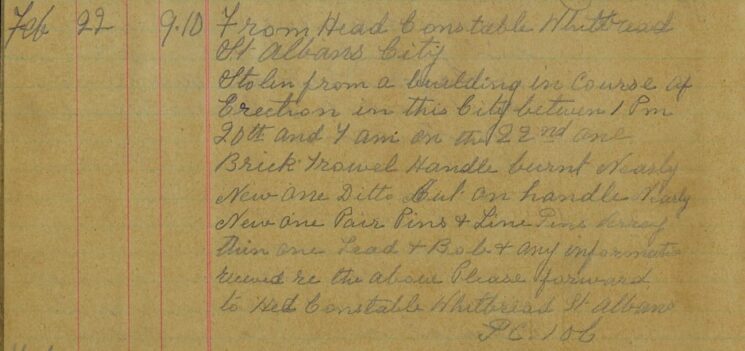 Feb 22 9.10 From Head Constable Whitbread
St Albans City
Stolen from a building in Course of
Erection in this City between 1 Pm
20th and 7 am on the 22nd one
Brick Trowel Handle burnt Nearly
New one Ditto Cut on handle Nearly
New one Pair Pins & Line Pins
thin one Lead & Bob & any information
received re the above Please forward
to Hed Constable Whitbread St Albans
PC 106